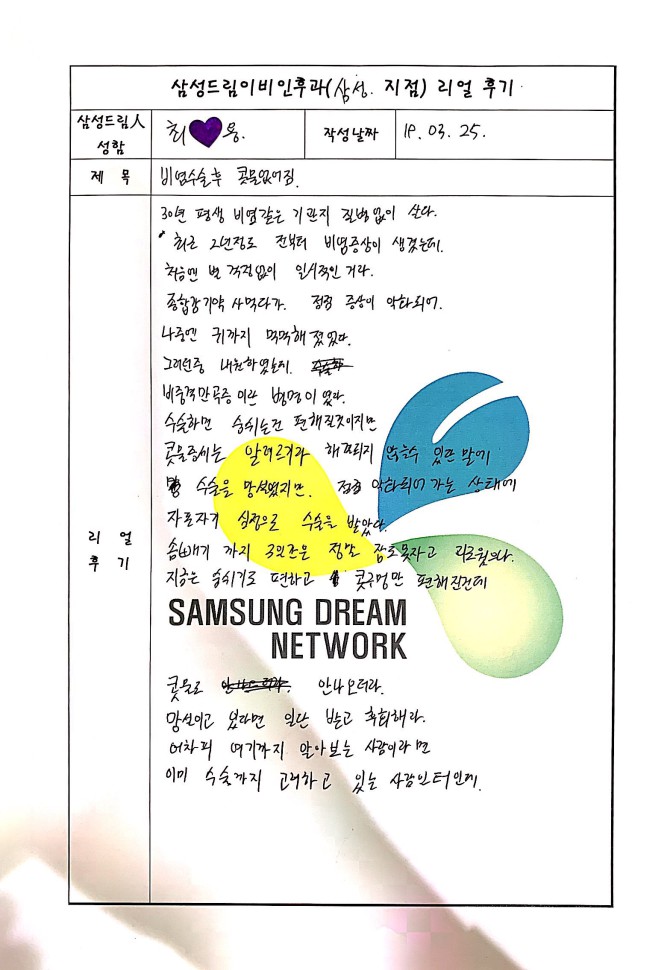 삼성드림이비인후과(삼성. 지점) 리얼 후기
삼성드림人
성함
최 용.
작성날짜
19. 03. 25.
제 목
비염수술후 콧물없어짐.
30년 평생 비염같은 기관지 질병없이 산다.
최근 2년정도 전부터 비염증상이 생겼는데.
처음엔 별 걱정없이 일시적인 거라.
종합감기약 사먹다가. 점점 증상이 악화되어.
나중엔 귀까지 먹먹해졌었다.
그러던중 내원하였는데.
비중격만곡증이란 병명이었다.
수술하면 숨쉬는건 편해질것이지만
콧물증세는 알러르기라 해결되지 않을수 있단 말에
수술을 망설였지만. 점점 악화되어 가는 상태에
자포자기 심정으로 수술을 받았다.
솜빼기 까지 3일간은 정말 잠도못자고 괴로웠으나.
지금은 숨쉬기도 편하고 콧구멍만 편해진건데
리 얼
후 기
SAMSUNG DREAM
NETWORK
콧물도 안나오더라.
망설이고 있다면 일단 받고 후회해라.
어차피 여기까지 알아보는 사람이라면
이미 수술까지 고려하고 있는 사람일터인데.